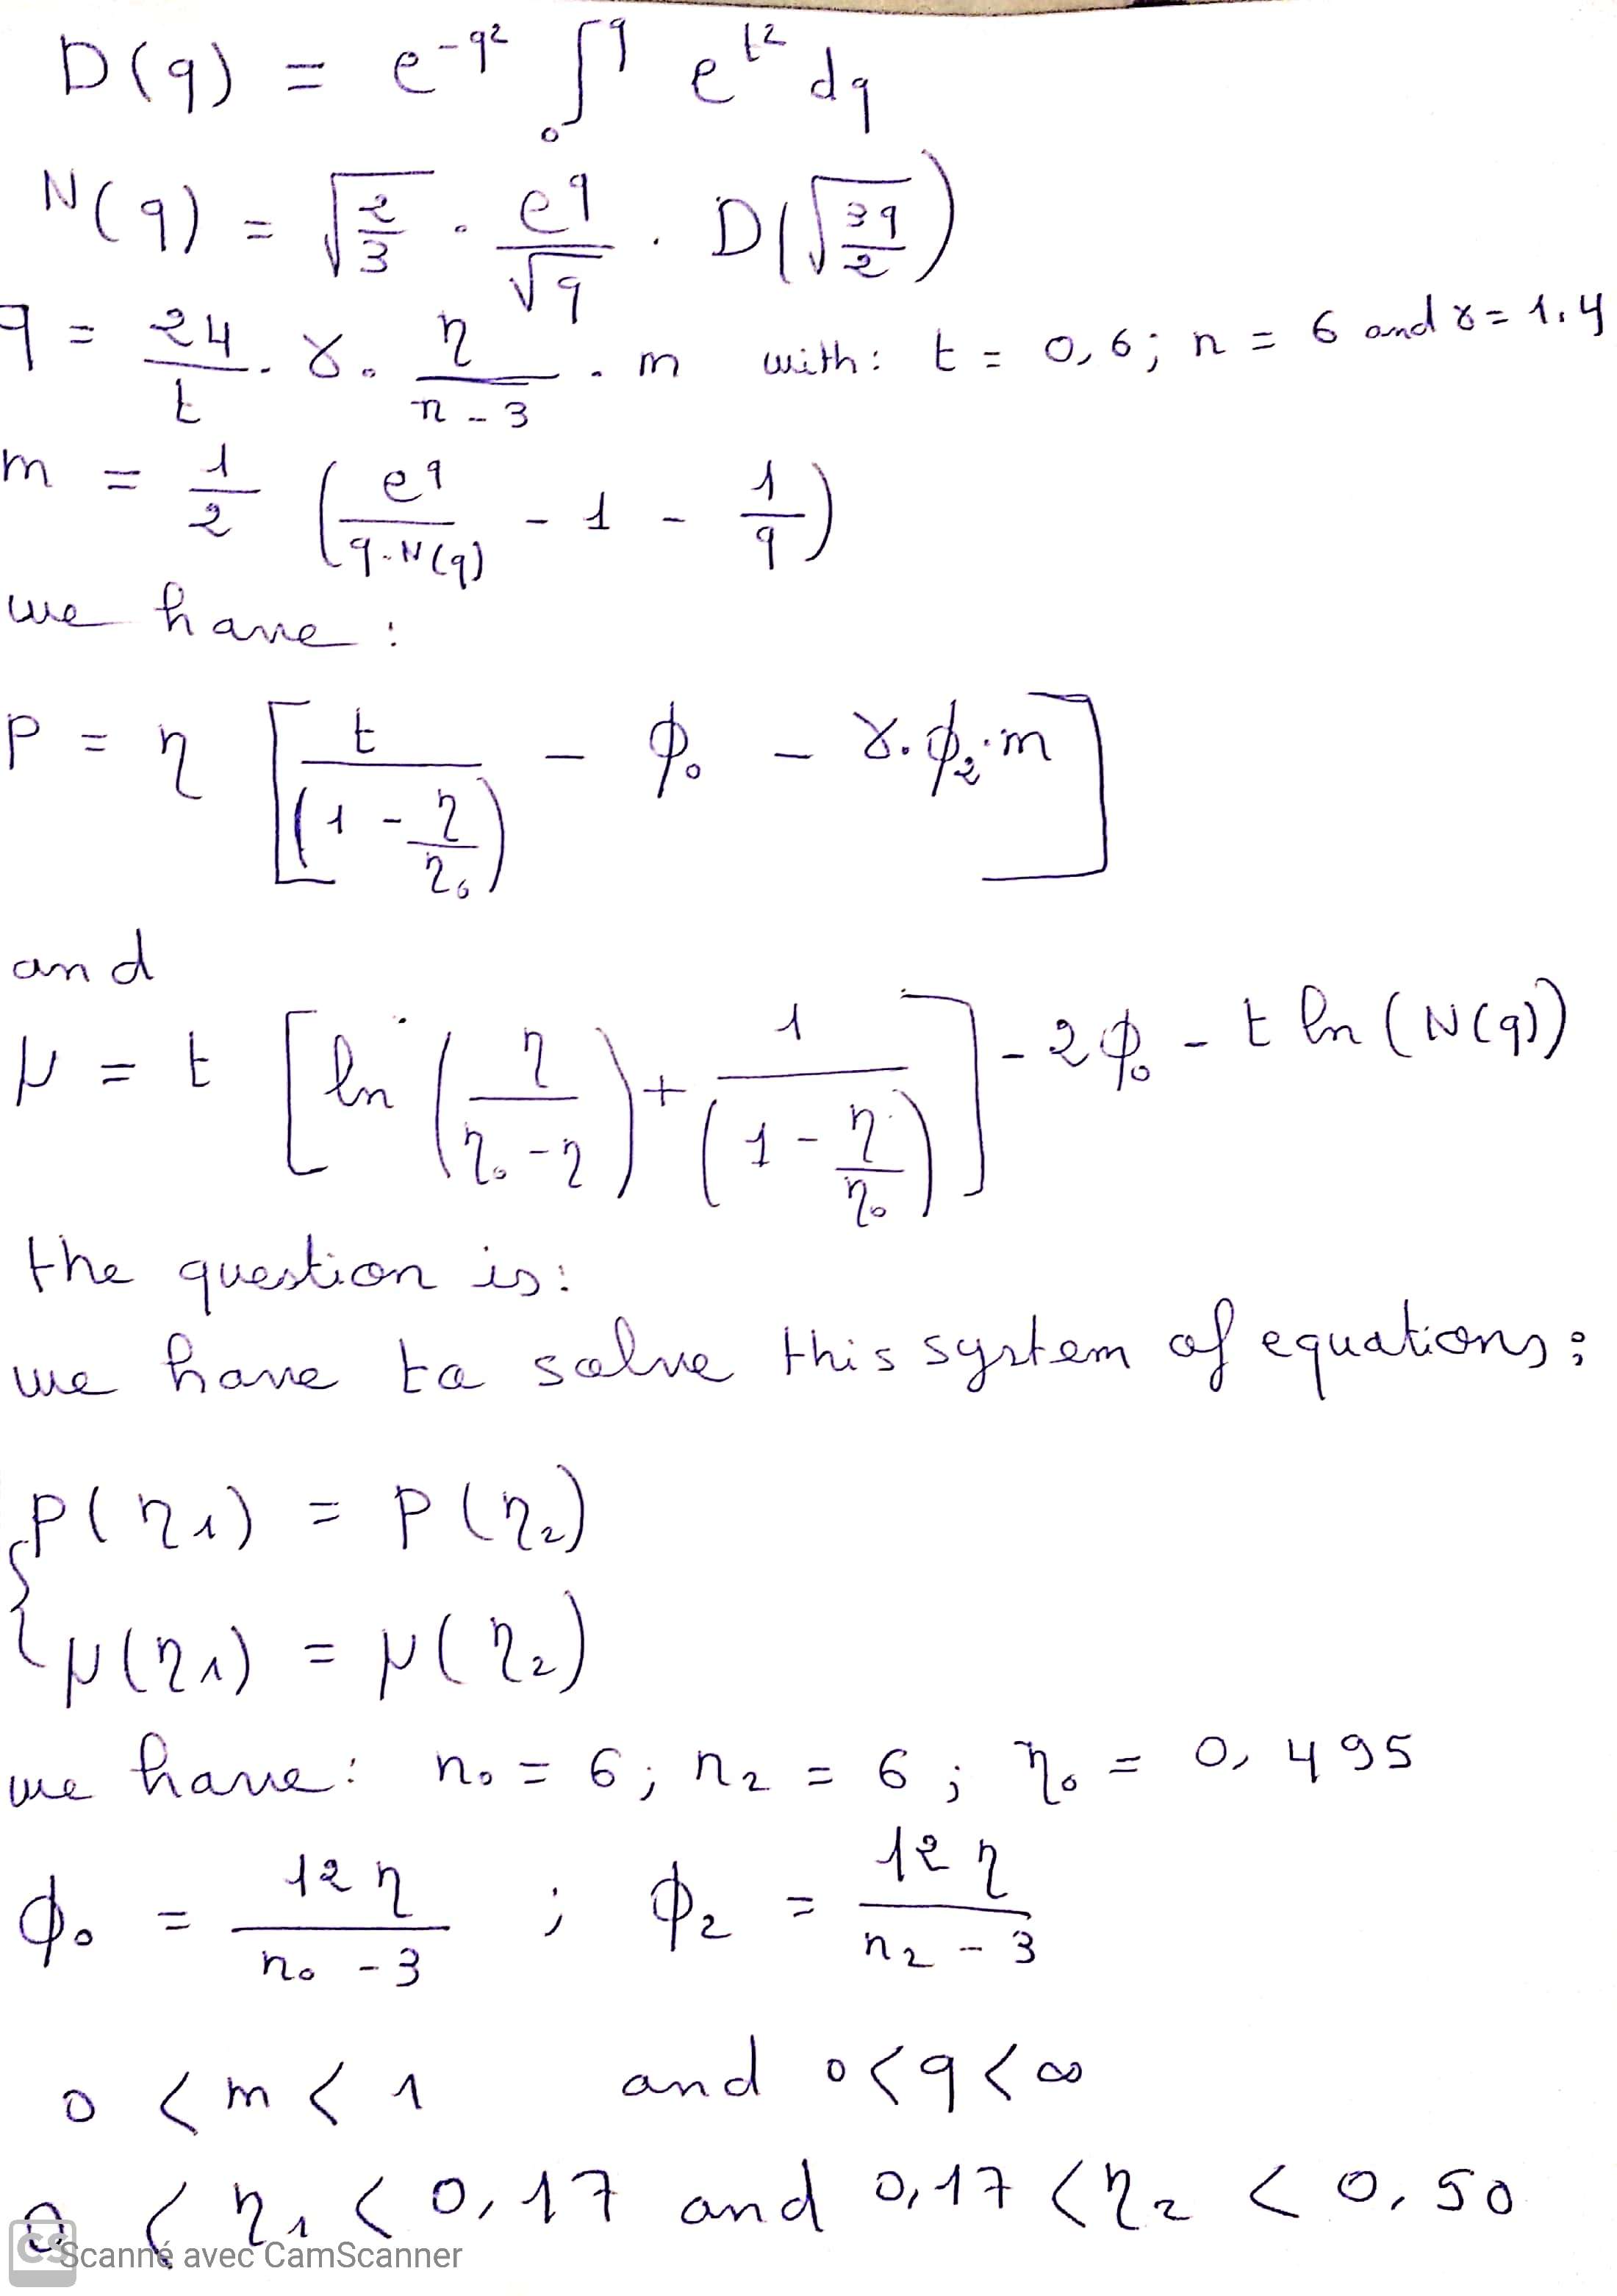 D(q) = e^{-q²} ∫₀^q e^{t²} dq
N(q) = √(2/3) · e^q/√q · D(√(3q/2))
q = 24/t · γ · η/(n-3) · m with: t = 0,6; n = 6 and γ = 1,4
m = 1/2 (e^q/(q·N(q)) - 1 - 1/q)
we have:
P = η [t/(1 - η/η₀) - ϕ₀ - γ·ϕ₂·m]
and
μ = t [ln(η/(η₀-η)) + 1/(1 - η/η₀)] - 2ϕ₀ - t ln(N(q))
the question is:
we have to solve this system of equations:
{ P(η₁) = P(η₂)
μ(η₁) = μ(η₂)
we have: n₀ = 6; n₂ = 6; η₀ = 0,495
ϕ₀ = 12η/(n₀-3) ; ϕ₂ = 12η/(n₂-3)
0 < m < 1 and 0 < q < ∞
0 < η₁ < 0,17 and 0,17 < η₂ < 0,50
CS Scanné avec CamScanner